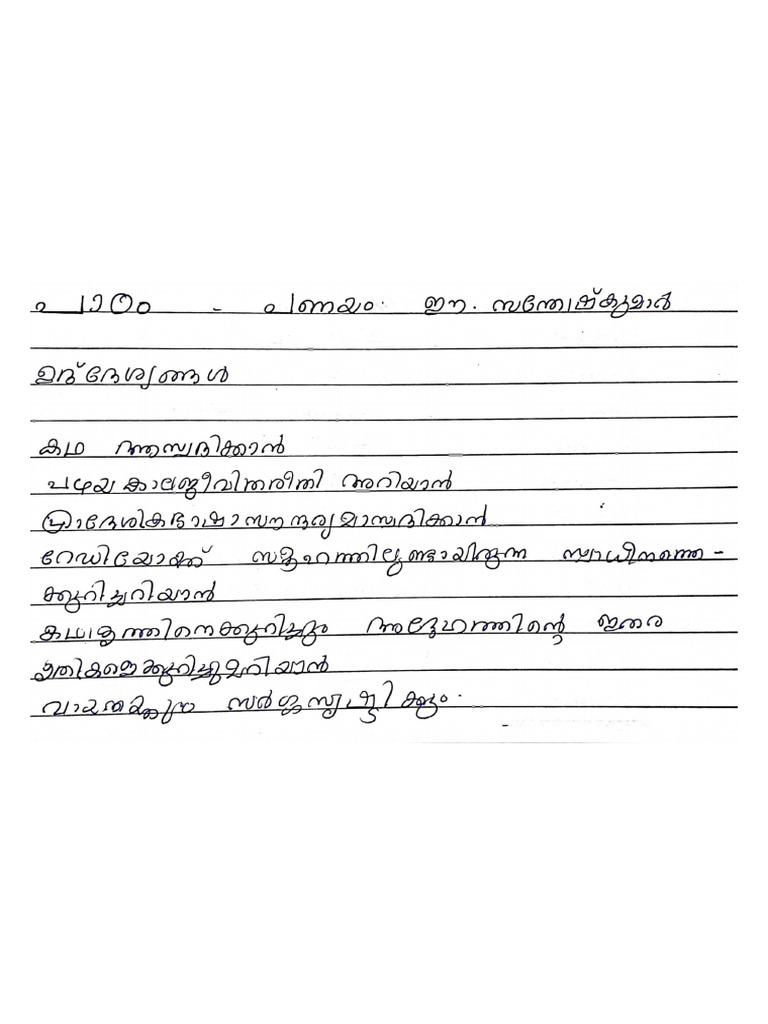 പാഠം - പണയം. ഈ. സന്തോഷ്കുമാർ
ഉദ്ദേശ്യങ്ങൾ
കഥ ആസ്വദിക്കാൻ
പഴയകാലജീവിതരീതി അറിയാൻ
പ്രാദേശികഭാഷാസൗന്ദര്യമാസ്വദിക്കാൻ
റേഡിയോക്ക് സമൂഹത്തിലുണ്ടായിരുന്ന സ്വാധീനത്തെ-
ക്കുറിച്ചറിയാൻ
കഥാകൃത്തിനെക്കുറിച്ചും അദ്ദേഹത്തിന്റെ ഇതര
കൃതികളെക്കുറിച്ചുമറിയാൻ
സർഗ്ഗസൃഷ്ടിക്കും.